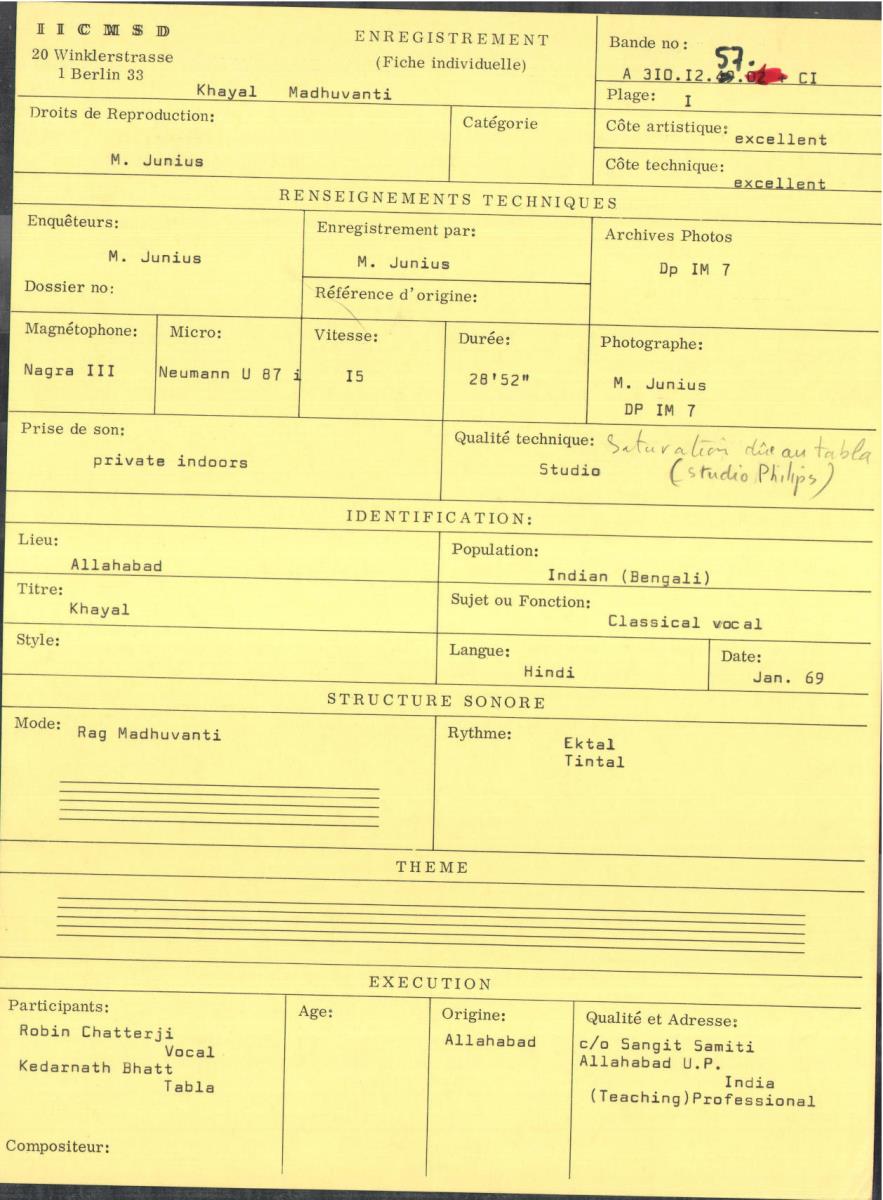 IICMSD
20 Winklerstrasse
1 Berlin 33
ENREGISTREMENT
(Fiche individuelle)
Khayal Madhuvanti
Bande no:
57.
A 3I0.I2. CI
Plage: I
Droits de Reproduction:
M. Junius
Catégorie
Côte artistique:
excellent
Côte technique:
excellent
RENSEIGNEMENTS TECHNIQUES
Enquêteurs:
M. Junius
Dossier no:
Enregistrement par:
M. Junius
Référence d'origine:
Archives Photos
Dp IM 7
Magnétophone:
Nagra III
Micro:
Neumann U 87 i
Vitesse:
I5
Durée:
28'52"
Photographe:
M. Junius
DP IM 7
Prise de son:
private indoors
Qualité technique: Saturation dûe au tabla
Studio (studio Philips)
IDENTIFICATION:
Lieu:
Allahabad
Population:
Indian (Bengali)
Titre:
Khayal
Sujet ou Fonction:
Classical vocal
Style:
Langue:
Hindi
Date:
Jan. 69
STRUCTURE SONORE
Mode: Rag Madhuvanti
Rythme:
Ektal
Tintal
THEME
EXECUTION
Participants:
Robin Chatterji
Vocal
Kedarnath Bhatt
Tabla
Compositeur:
Age:
Origine:
Allahabad
Qualité et Adresse:
c/o Sangit Samiti
Allahabad U.P.
India
(Teaching)Professional